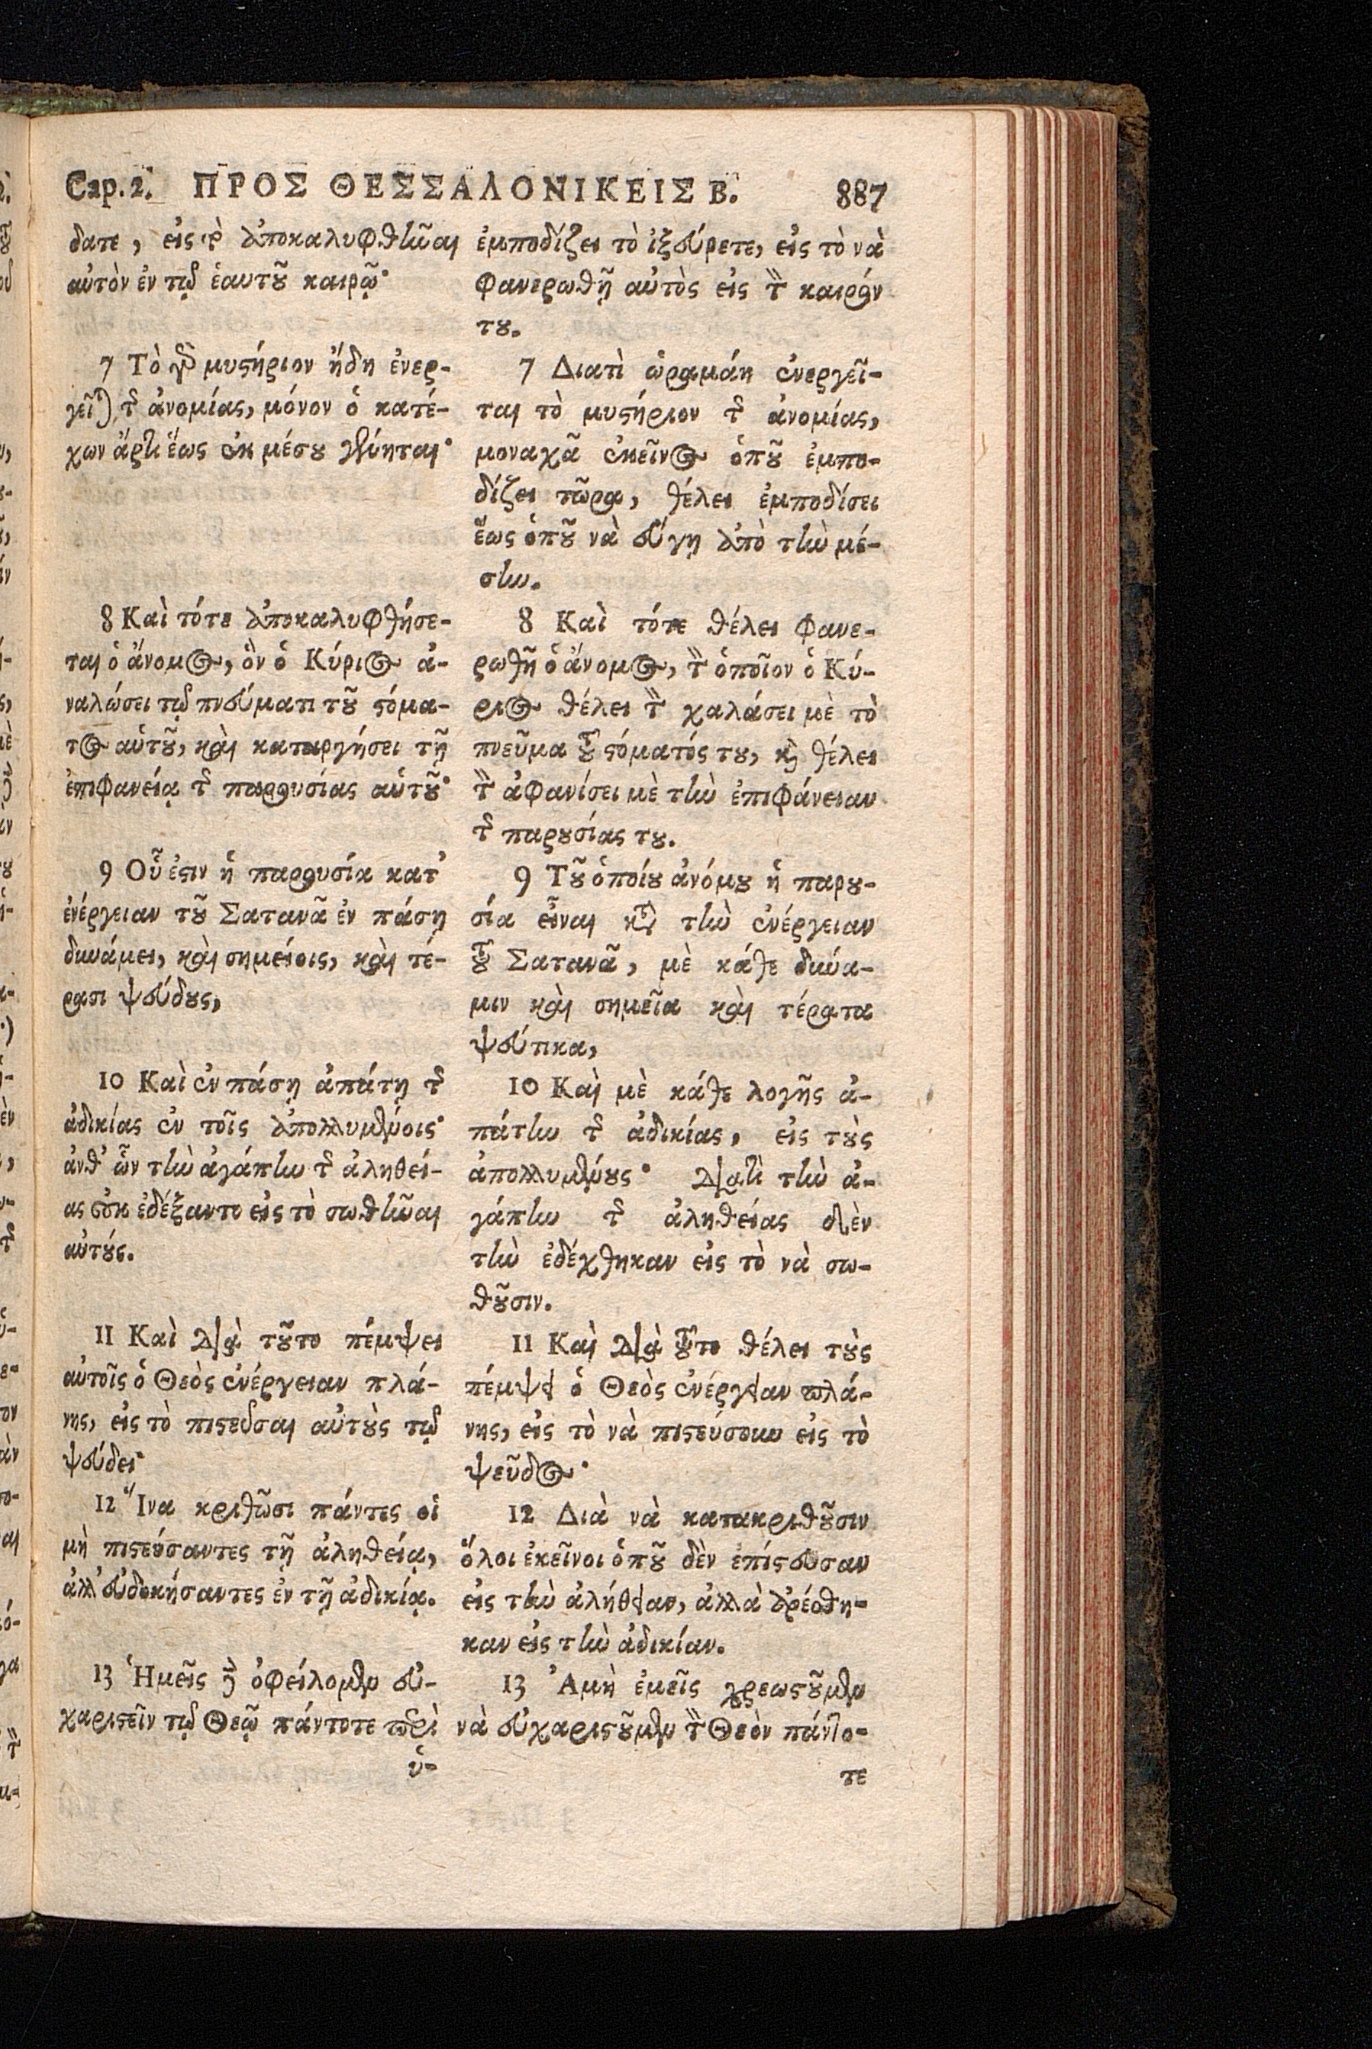 Cap. 2. ΠΡΟΣ ΘΕΣΣΑΛΟΝΙΚΕΙΣ Β. 887
δατε, εἰς τὸ ἀποκαλυφθῆναι
αὐτὸν ἐν τῷ ἑαυτοῦ καιρῷ·
7 Τὸ γὰρ μυςήριον ἤδη ἐνερ-
γεῖται τῆς ἀνομίας, μόνον ὁ κατέ-
χων ἄρτι ἕως ἐκ μέσου γένηται·
8 Καὶ τότε ἀποκαλυφθήσε-
ται ὁ ἄνομος, ὃν ὁ Κύριος ἀ-
ναλώσει τῷ πνεύματι τοῦ ςόμα-
τος αὑτοῦ, καὶ καταργήσει τῇ
ἐπιφανείᾳ τῆς παρουσίας αὑτοῦ·
9 Οὗ ἐςιν ἡ παρουσία κατ'
ἐνέργειαν τοῦ Σατανᾶ ἐν πάσῃ
δυνάμει, καὶ σημείοις, καὶ τέ-
ρασι ψεύδους,
10 Καὶ ἐν πάσῃ ἀπάτῃ τῆς
ἀδικίας ἐν τοῖς ἀπολλυμένοις·
ἀνθ' ὧν τὴν ἀγάπην τῆς ἀληθεί-
ας οὐκ ἐδέξαντο εἰς τὸ σωθῆναι
αὐτούς.
11 Καὶ διὰ τοῦτο πέμψει
αὐτοῖς ὁ Θεὸς ἐνέργειαν πλά-
νης, εἰς τὸ πιςεῦσαι αὐτοὺς τῷ
ψεύδει·
12 Ἵνα κριθῶσι πάντες οἱ
μὴ πιςεύσαντες τῇ ἀληθείᾳ,
ἀλλ' εὐδοκήσαντες ἐν τῇ ἀδικίᾳ.
13 Ἡμεῖς δὲ ὀφείλομεν εὐ-
χαριςεῖν τῷ Θεῷ πάντοτε περὶ
ὑ-
ἐμποδίζει τὸ ἰξεύρετε, εἰς τὸ νὰ
φανερωθῇ αὐτὸς εἰς τὸν καιρόν
του.
7 Διατὶ ὡραμάνη ἐνεργεῖ-
ται τὸ μυςήριον τῆς ἀνομίας,
μοναχᾶ ἐκεῖνος ὁποῦ ἐμπο-
δίζει τῶρα, θέλει ἐμποδίσει
ἕως ὁποῦ νὰ εὔγῃ ἀπὸ τὴν μέ-
σην.
8 Καὶ τότε θέλει φανε-
ρωθῆ ὁ ἄνομος, τὸν ὁποῖον ὁ Κύ-
ριος θέλει τὸν χαλάσει μὲ τὸ
πνεῦμα τοῦ ςόματός του, καὶ θέλει
τὸν ἀφανίσει μὲ τὴν ἐπιφάνειαν
τῆς παρουσίας του.
9 Τοῦ ὁποίου ἀνόμου ἡ παρου-
σία εἶναι κατὰ τὴν ἐνέργειαν
τοῦ Σατανᾶ, μὲ κάθε δύνα-
μιν καὶ σημεῖα καὶ τέρατα
ψεύτικα,
10 Καὶ μὲ κάθε λογῆς ἀ-
πάτην τῆς ἀδικίας, εἰς τοὺς
ἀπολλυμένους· διατὶ τὴν ἀ-
γάπην τῆς ἀληθείας δὲν
τὴν ἐδέχθηκαν εἰς τὸ νὰ σω-
θοῦσιν.
11 Καὶ διὰ τοῦτο θέλει τοὺς
πέμψει ὁ Θεὸς ἐνέργειαν πλά-
νης, εἰς τὸ νὰ πιςεύσουν εἰς τὸ
ψεῦδος·
12 Διὰ νὰ κατακριθοῦσιν
ὅλοι ἐκεῖνοι ὁποῦ δὲν ἐπίςευσαν
εἰς τὴν ἀλήθειαν, ἀλλὰ ἀρέσθη-
καν εἰς τὴν ἀδικίαν.
13 Ἀμὴ ἐμεῖς χρεωςοῦμεν
νὰ εὐχαριςοῦμεν τὸν Θεὸν πάντο-
τε